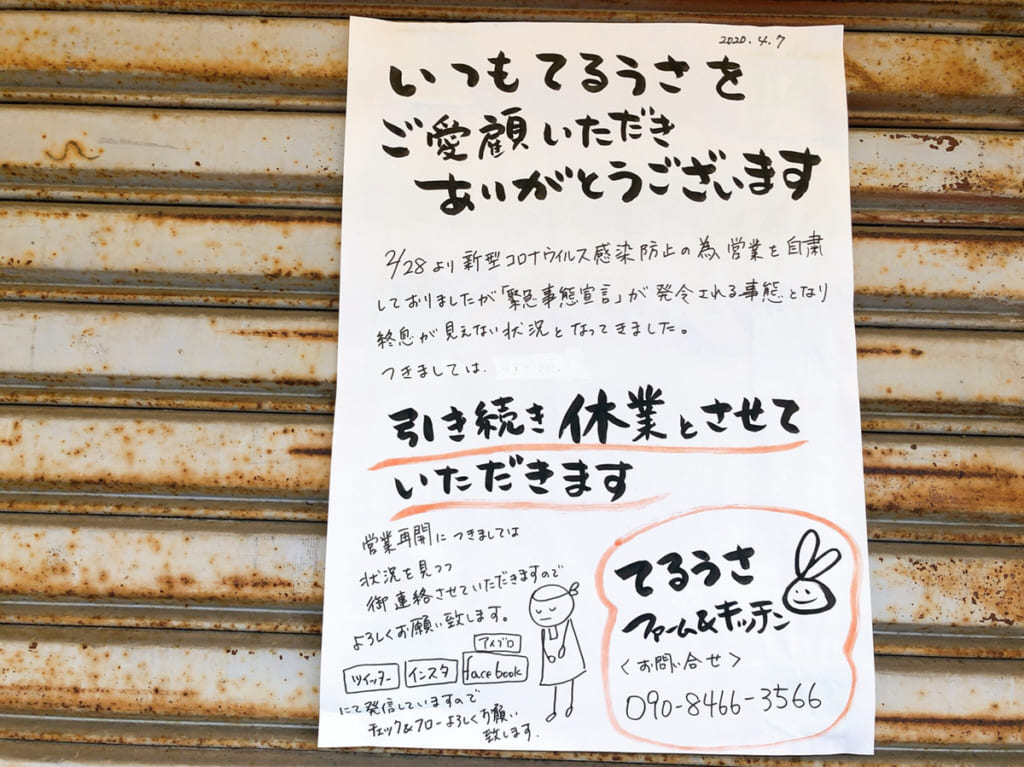 2020.4.7
いつもてるうさを
ご愛顧いただき
ありがとうございます
2/28より新型コロナウイルス感染防止の為、営業を自粛
しておりましたが「緊急事態宣言」が発令される事態となり
終息が見えない状況となってきました。
つきましては、
引き続き休業とさせて
いただきます
営業再開につきましては
状況を見つつ
御連絡させていただきますので
よろしくお願い致します。
アメブロ
ツイッター インスタ facebook
にて発信していますので
チェック&フローよろしくお願い
致します.
てるうさ
ファーム&キッチン
<お問い合せ>
090-8466-3566